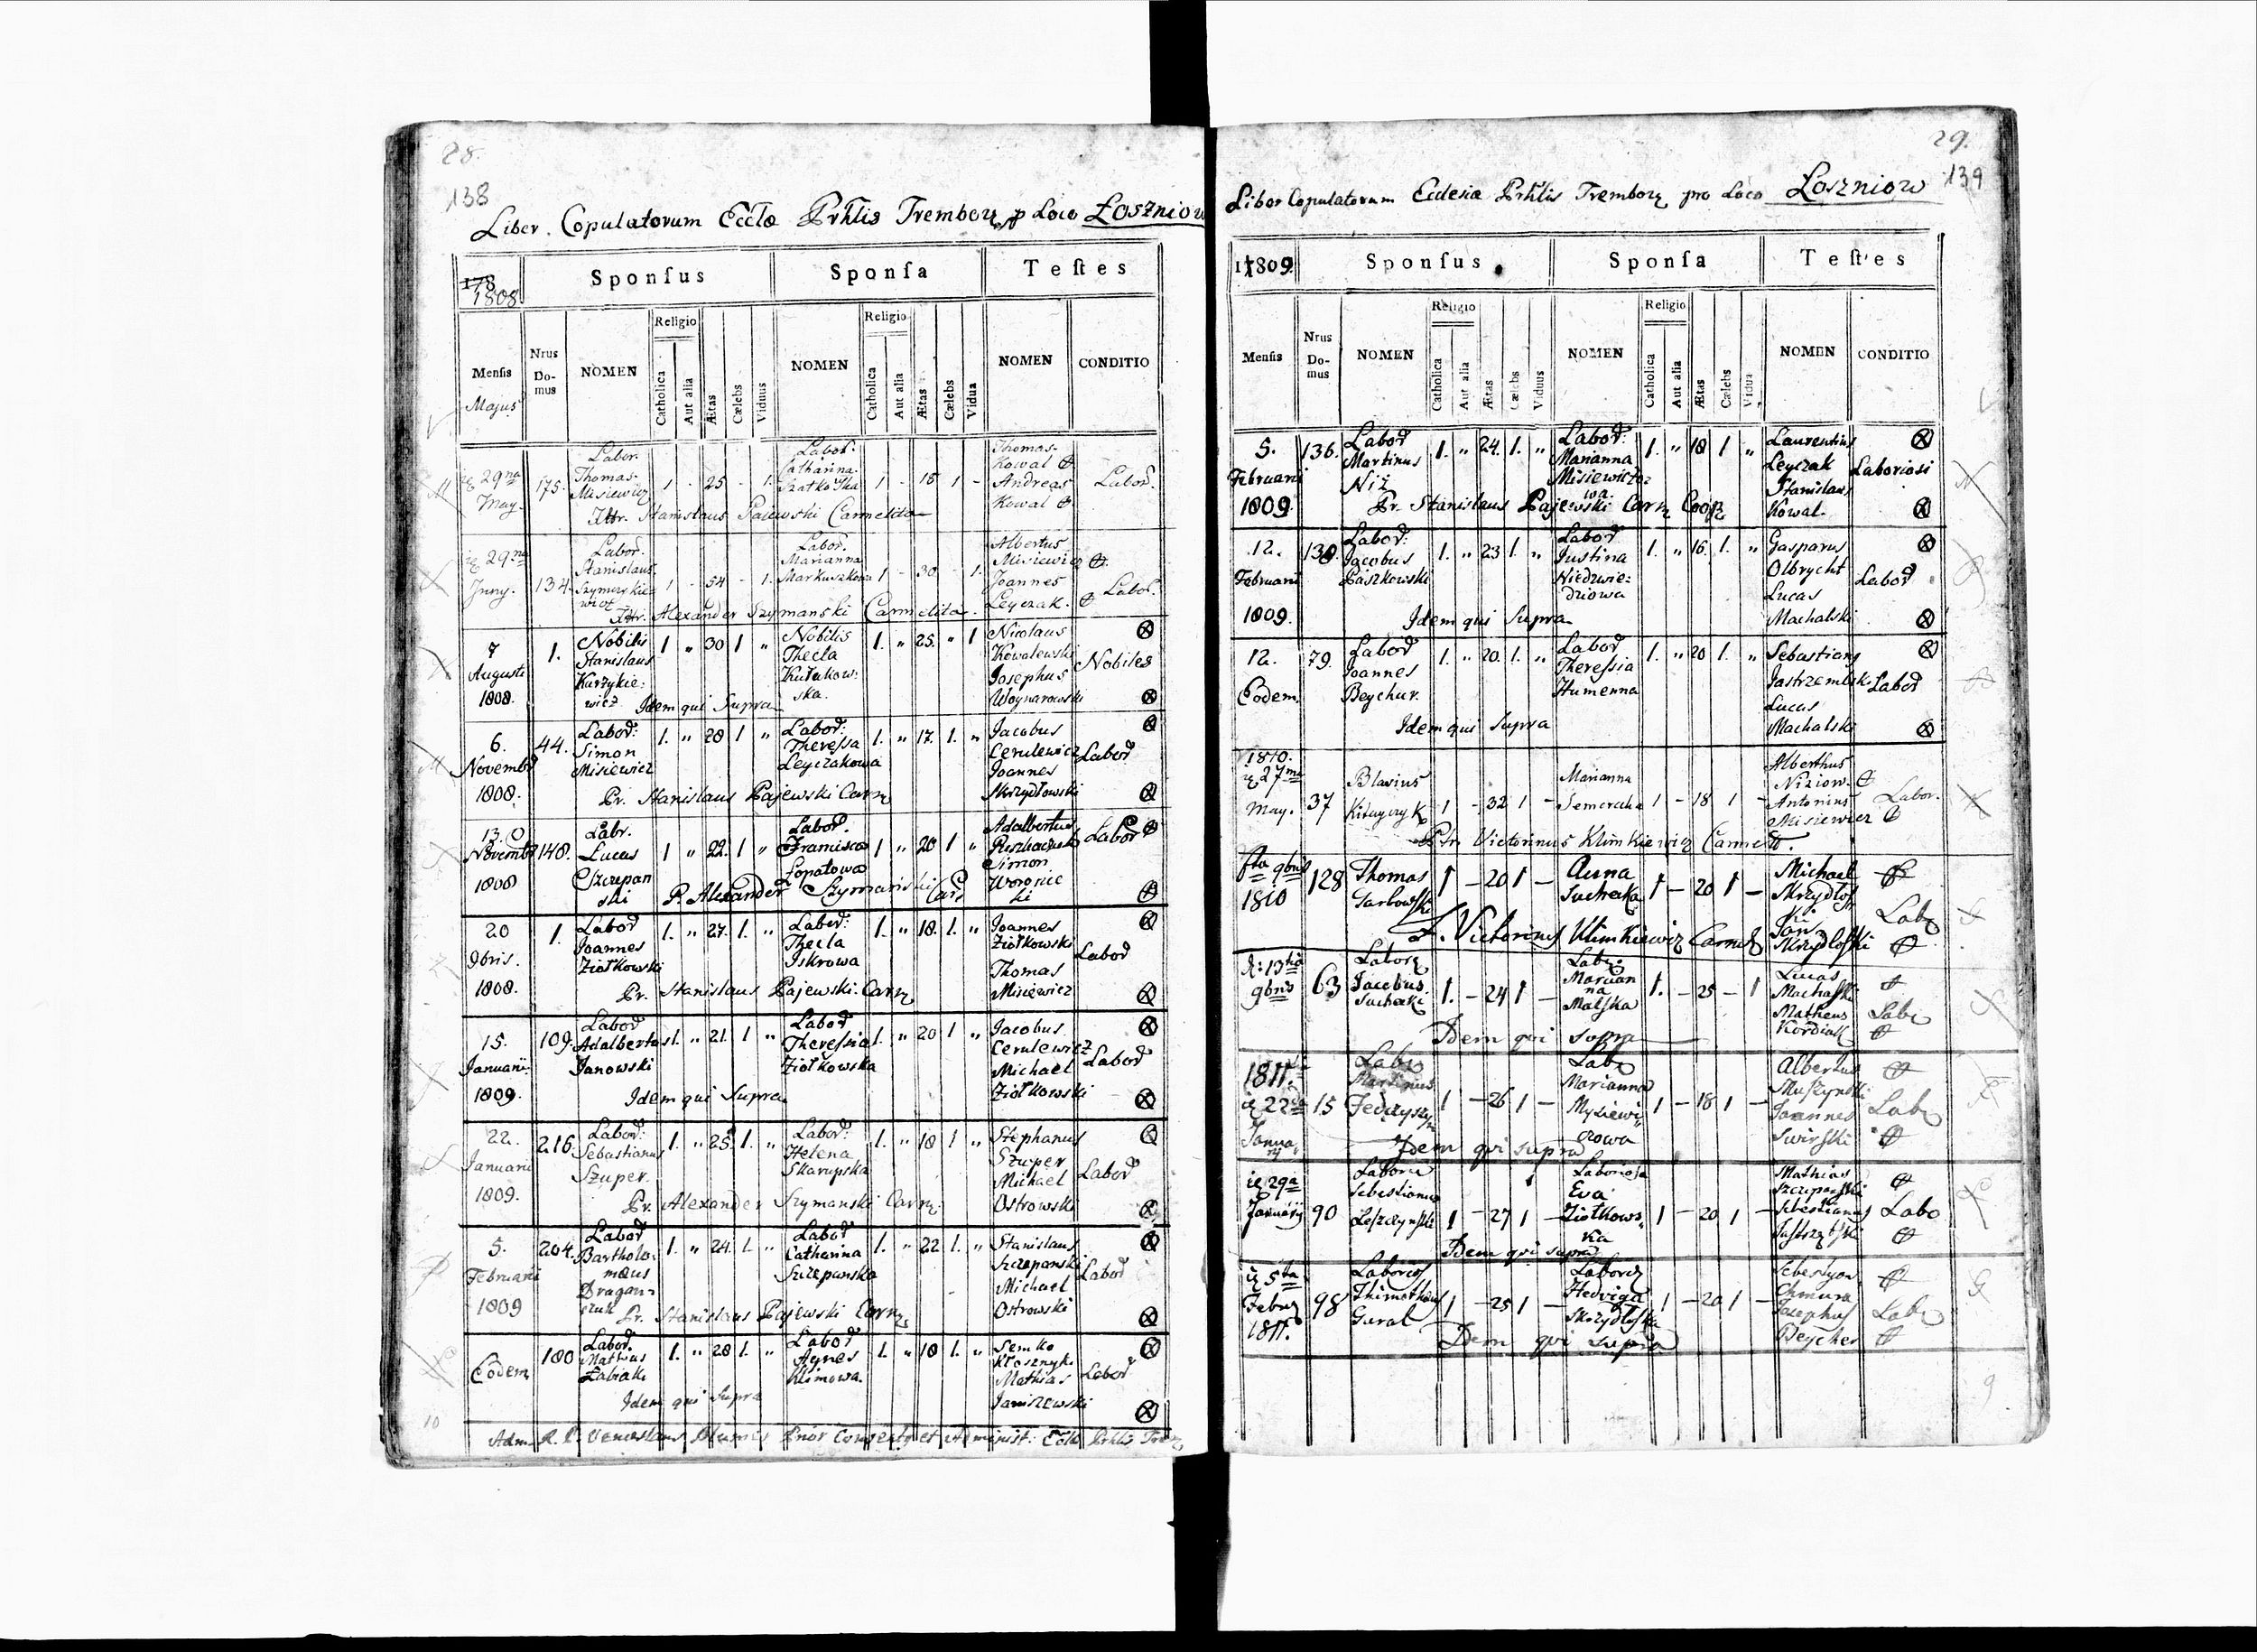 28.
138
Liber Copulatorum Eccla Prhlis Trembow p Loco Łoszniow
178
1808
Sponsus Sponsa Testes
Mensis
Majus
Nrus Domus
NOMEN
Religio
Catholica
Aut alia
Ætas
Cælebs
Viduus
NOMEN
Religio
Catholica
Aut alia
Ætas
Cælebs
Vidua
NOMEN
CONDITIO
29na May. 175. Labor. Thomas Misiewicz 1 - 25 - 1. Labor. Catharina 1 - 18 1 - Thomas Kowal Andreas Kowal Labor.
Stanislaus Pajewski Carmelita
29na Juny. 134. Labor. Stanislaus 1 - 54 - 1. Labor. Marianna 1 - 30 - 1. Albertus Misiewicz Joannes Leyczak. Labor.
Alexander Szymanski Carmelita.
7 Augusti 1808. 1. Nobilis Stanislaus Kurzykiewicz 1 " 30 1 " Nobilis Thecla Kułakowska. 1. " 25. " 1 Nicolaus Kowalewski Josephus Woynarowski Nobiles
Idem qui Supra
6. Novembr 1808. 44. Labor: Simon Misiewicz 1. " 28 1 " Labor: Theressa Leyczakowa 1. " 17. 1. " Jacobus Cerulewicz Joannes Skrzydłowski Labor
Pr. Stanislaus Pajewski Carm
13. Novembr 1808 148. Labr. Lucas Szczepanski 1 " 22. 1 " Labor. Francisca Łopatowa 1 " 20 1 " Adalbertus Simon Labor
P. Alexander Szymanski Car
20 9bris. 1808. 1. Labor Joannes Ziołkowski 1. " 27. 1. " Labor: Thecla Iskrowa 1. " 18. 1. " Joannes Ziołkowski Thomas Misiewicz Labor
Pr. Stanislaus Pajewski Carm
15. Januarii 1809. 109. Labor Adalbertus Janowski 1. " 21. 1 " Labor Theressia Ziołkowska 1. " 20 1 " Jacobus Cerulewicz Michael Ziołkowski Labor
Idem qui Supra
22. Januarii 1809. 216. Labor: Sebastianus Szuper. 1. " 25. 1. " Labor: Helena Skarupska 1. " 18 1 " Stephanus Szuper Michael Ostrowski Labor
Pr. Alexander Szymanski Carm.
5. Februarii 1809 204. Labor Bartholomæus Draganczuk 1. " 24. 1. " Labor Catharina Szczepanska 1. " 22 1. " Stanislaus Szczepanski Michael Ostrowski Labor
Pr. Stanislaus Pajewski Carm.
Eodem 180 Labor. Mathias Łabiak 1. " 28 1. " Labor Agnes Klimowa. 1. " 18 1. " Semko Mathias Janiszewski Labor
Idem qui Supra
10
Adm. R. P. Venceslaus Prior Conventus et Administ: Eccl Prhlis Trem
29.
139
Liber Copulatorum Ecclesia Prhlis Trembow pro Loco Łoszniow
1809.
Sponsus Sponsa Testes
Mensis
Nrus Domus
NOMEN
Religio
Catholica
Aut alia
Ætas
Cælebs
Viduus
NOMEN
Religio
Catholica
Aut alia
Ætas
Cælebs
Vidua
NOMEN
CONDITIO
5. Februarii 1809. 136. Labor Martinus Niż 1. " 24. 1. " Labor: Marianna Misiewiczowa. 1. " 18 1 " Laurentius Leyczak Stanislaus Kowal. Laboriosi
Pr. Stanislaus Pajewski Carm Coop
12. Februarii 1809. 130. Labor: Jacobus Paszkowski 1. " 23 1. " Labor Justina Niedzwiedziowa 1. " 16. 1. " Gasparus Olbrycht Lucas Machalski Labor
Idem qui Supra
12. Eodem 79. Labor Joannes Beychur. 1. " 20. 1. " Labor Theressia Humenna 1. " 20 1. " Sebastianus Jastrzembski Lucas Machalski Labor
Idem qui Supra
1810. 27ma May. 37 Blasius 1 - 32 1 - Marianna 1 - 18 1 - Alberthus Niziow Antonius Misiewicz Labor.
Victorinus Klimkiewicz Carmelit.
9bris 1810 128 Thomas Garlowski 1 - 20 1 - Anna Suchecka 1 - 20 1 - Michael Jan Lab
F. Victorinus Klimkiewicz Carmel
13tia 9bris 63 Jacobus Suchecki 1. - 24 1 - Marianna Malska 1. - 25 - 1 Lucas Machalski Matheus Labr
Idem qui supra
1811. 22da Januarij 15 Martinus 1 - 26 1 - Marianna Mysiewiczowa 1 - 18 1 - Albertus Muszynski Joannes Swirski Lab
Idem qui supra
29a Januarij 90 Sebestianus Leszczynski 1 - 27 1 - Laboriosa Eva Ziołkowska 1 - 20 1 - Mathias Szczepanski Sebestianus Labo
Idem qui supra
5ta Febr 1811. 98 Thimotheus Gural 1 - 25 1 - Hedviga 1 - 20 1 - Sebestyan Chmura Josephus Beycher Lab
Idem qui supra
9